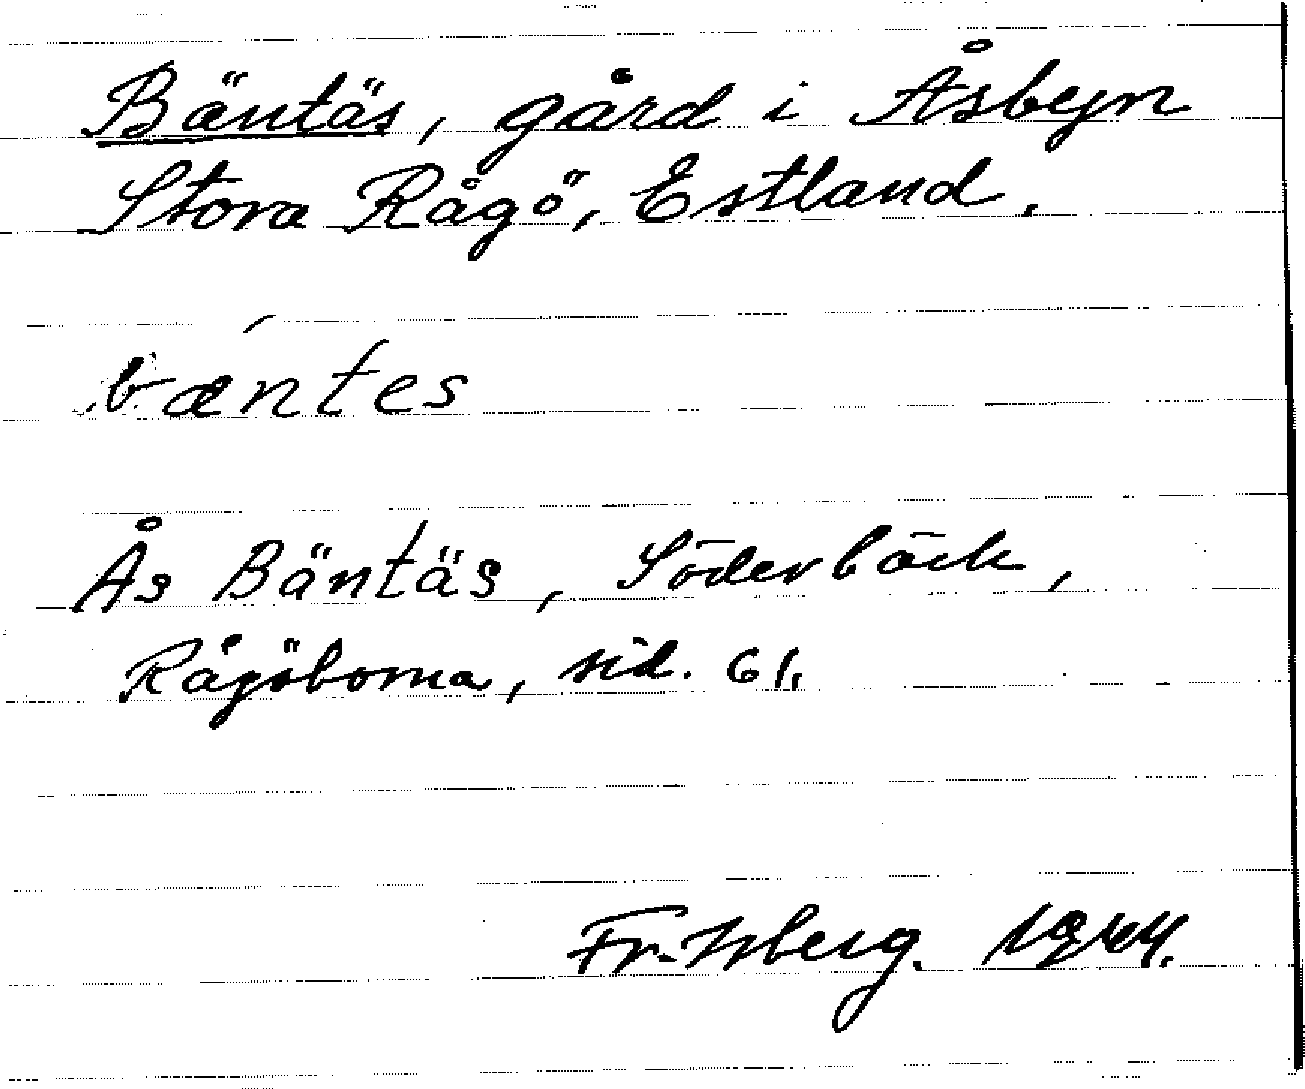 Bäntäs, gård i Åsbyn
Stora Rågö, Estland.
bǽntes
Ås Bäntäs, Söderbäck,
Rågöborna, sid. 61.
Fr. Isberg. 1944.